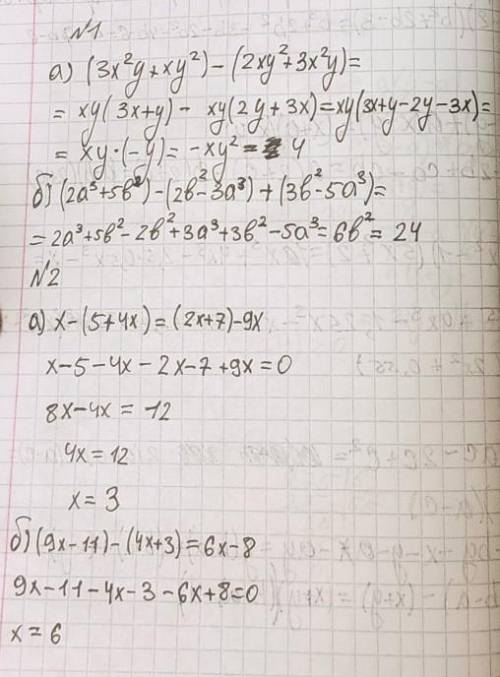 №1
а) (3x²y + xy²) - (2xy² + 3x²y) =
= xy(3x+y) - xy(2y+3x) = xy(3x+y-2y-3x) =
= xy·(-y) = -xy² = 4
б) (2a³+5b²) - (2b²-3a³) + (3b²-5a³) =
= 2a³+5b²-2b²+3a³+3b²-5a³ = 6b² = 24
№2
а) x-(5+4x) = (2x+7)-9x
x-5-4x-2x-7+9x=0
8x-4x = -12
4x = 12
x = 3
б) (9x-11)-(4x+3) = 6x-8
9x-11-4x-3-6x+8=0
x = 6